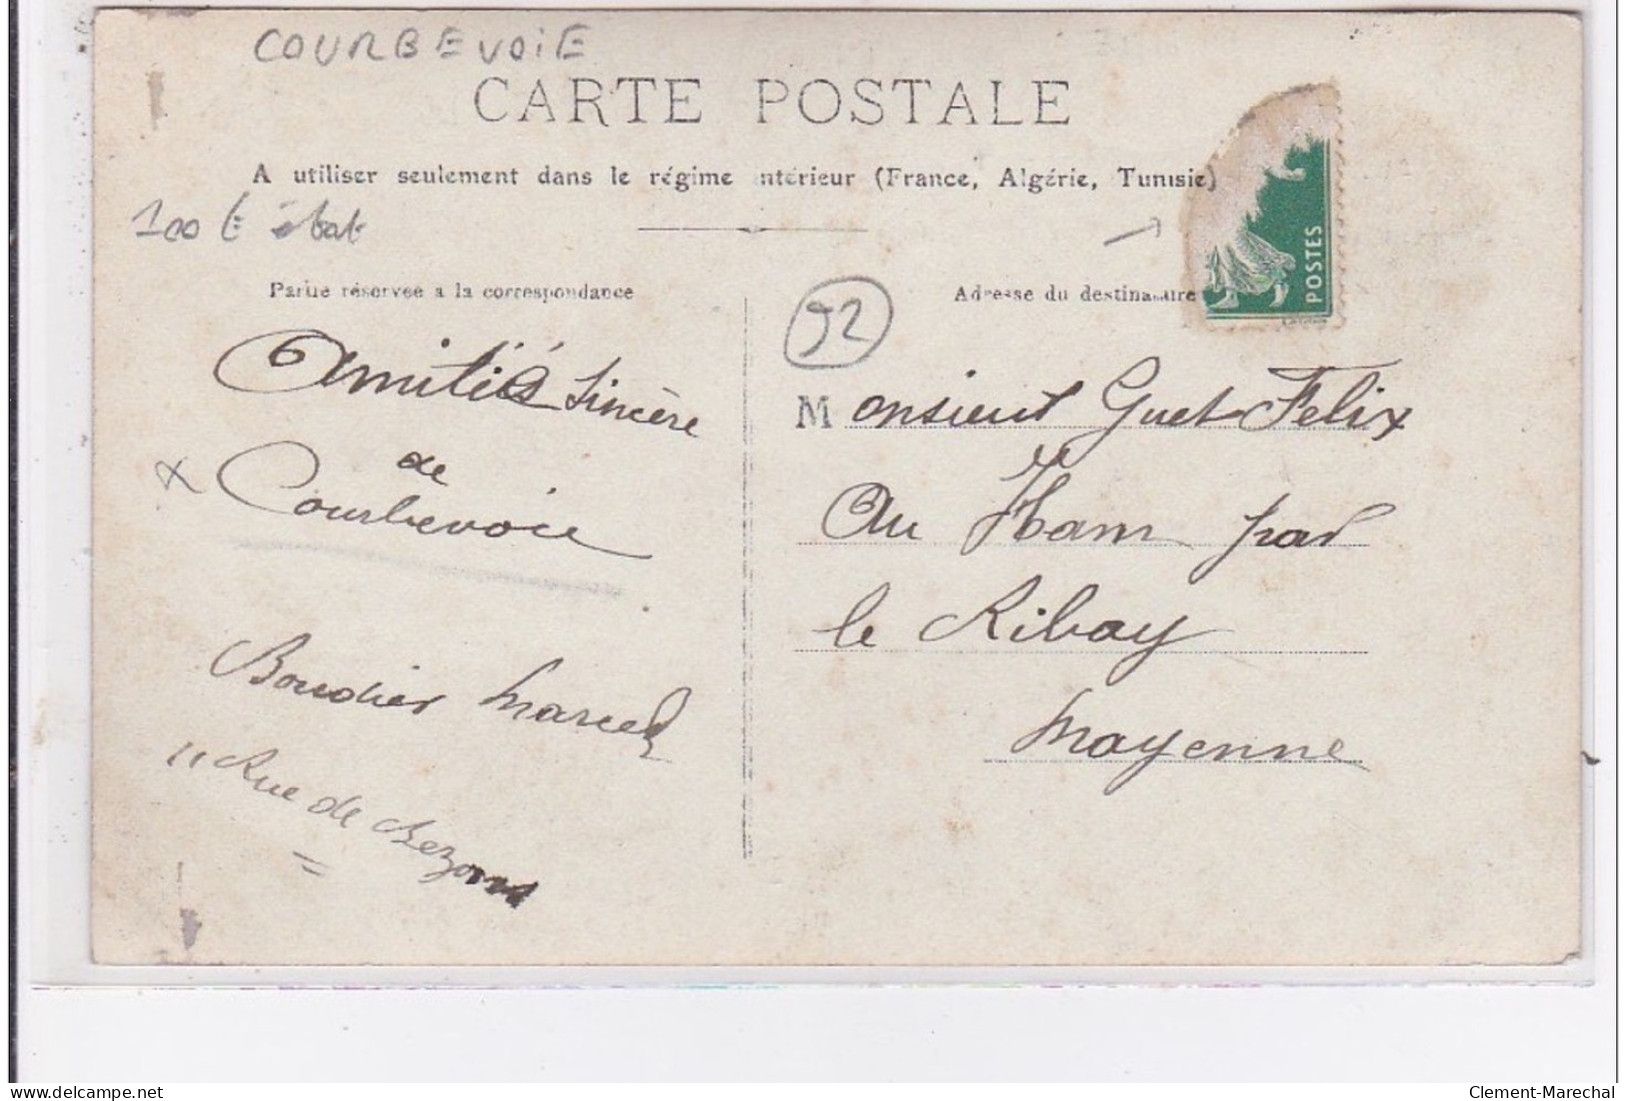 COURBEVOIE
CARTE POSTALE
A utiliser seulement dans le régime intérieur (France, Algérie, Tunisie)
100 € état
POSTES
Partie réservée a la correspondance
Adresse du destinataire
92
Amitiés Sincère
de
Courbevoie
Boudier Marcel
11 Rue de Bezons
Monsieur Guet Felix
Au Ham par
le Ribay
Mayenne
delcampe.net
Clement-Marechal